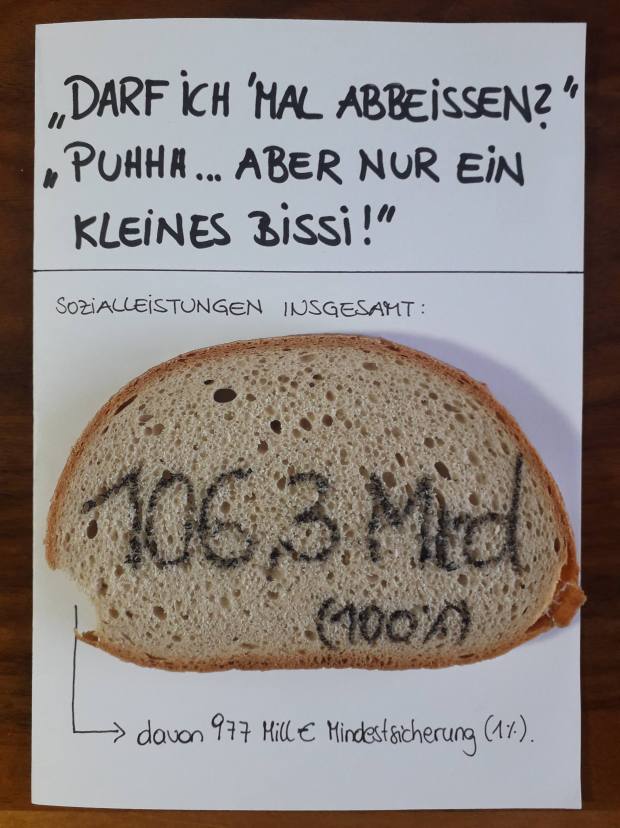 „DARF ICH 'MAL ABBEISSEN?"
„PUHHH... ABER NUR EIN
KLEINES BISSI!"
SOZIALLEISTUNGEN INSGESAMT:
106,3 Mrd
(100%)
davon 977 Mill € Mindestsicherung (1%).